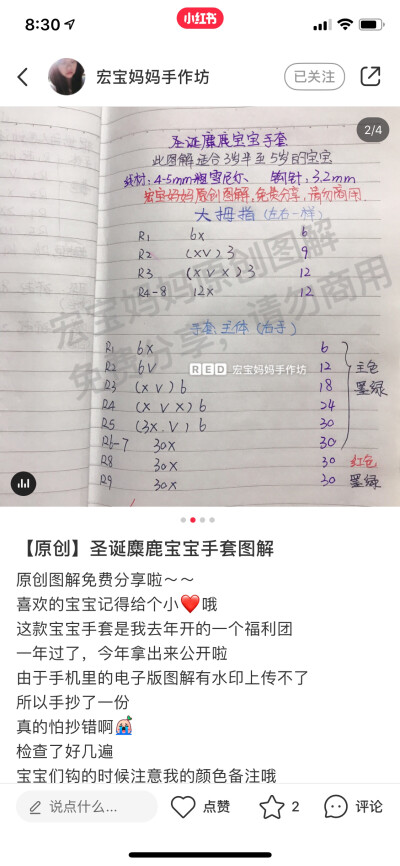 8:30
小红书
宏宝妈妈手作坊
已关注
2/4
圣诞麋鹿宝宝手套
此图解适合3岁半至5岁的宝宝
线材:4-5mm粗雪尼尔、钩针:3.2mm
宏宝妈妈原创图解,免费分享,请勿商用
大拇指(左右一样)
R1 6x 6
R2 (xv)3 9
R3 (xvx)3 12
R4-8 12x 12
宏宝妈妈原创图解
免费分享,请勿商用
手套主体(右手)
R1 6x 6
R2 6v 12 主色
RED 宏宝妈妈手作坊
R3 (xv)6 18 墨绿
R4 (xvx)6 24
R5 (3x.v)6 30
R6-7 30x 30
R8 30x 30 红色
R9 30x 30 墨绿
【原创】圣诞麋鹿宝宝手套图解
原创图解免费分享啦~~
喜欢的宝宝记得给个小❤️哦
这款宝宝手套是我去年开的一个福利团
一年过了,今年拿出来公开啦
由于手机里的电子版图解有水印上传不了
所以手抄了一份
真的怕抄错啊😭
检查了好几遍
宝宝们钩的时候注意我的颜色备注哦
说点什么...
点赞
2
评论